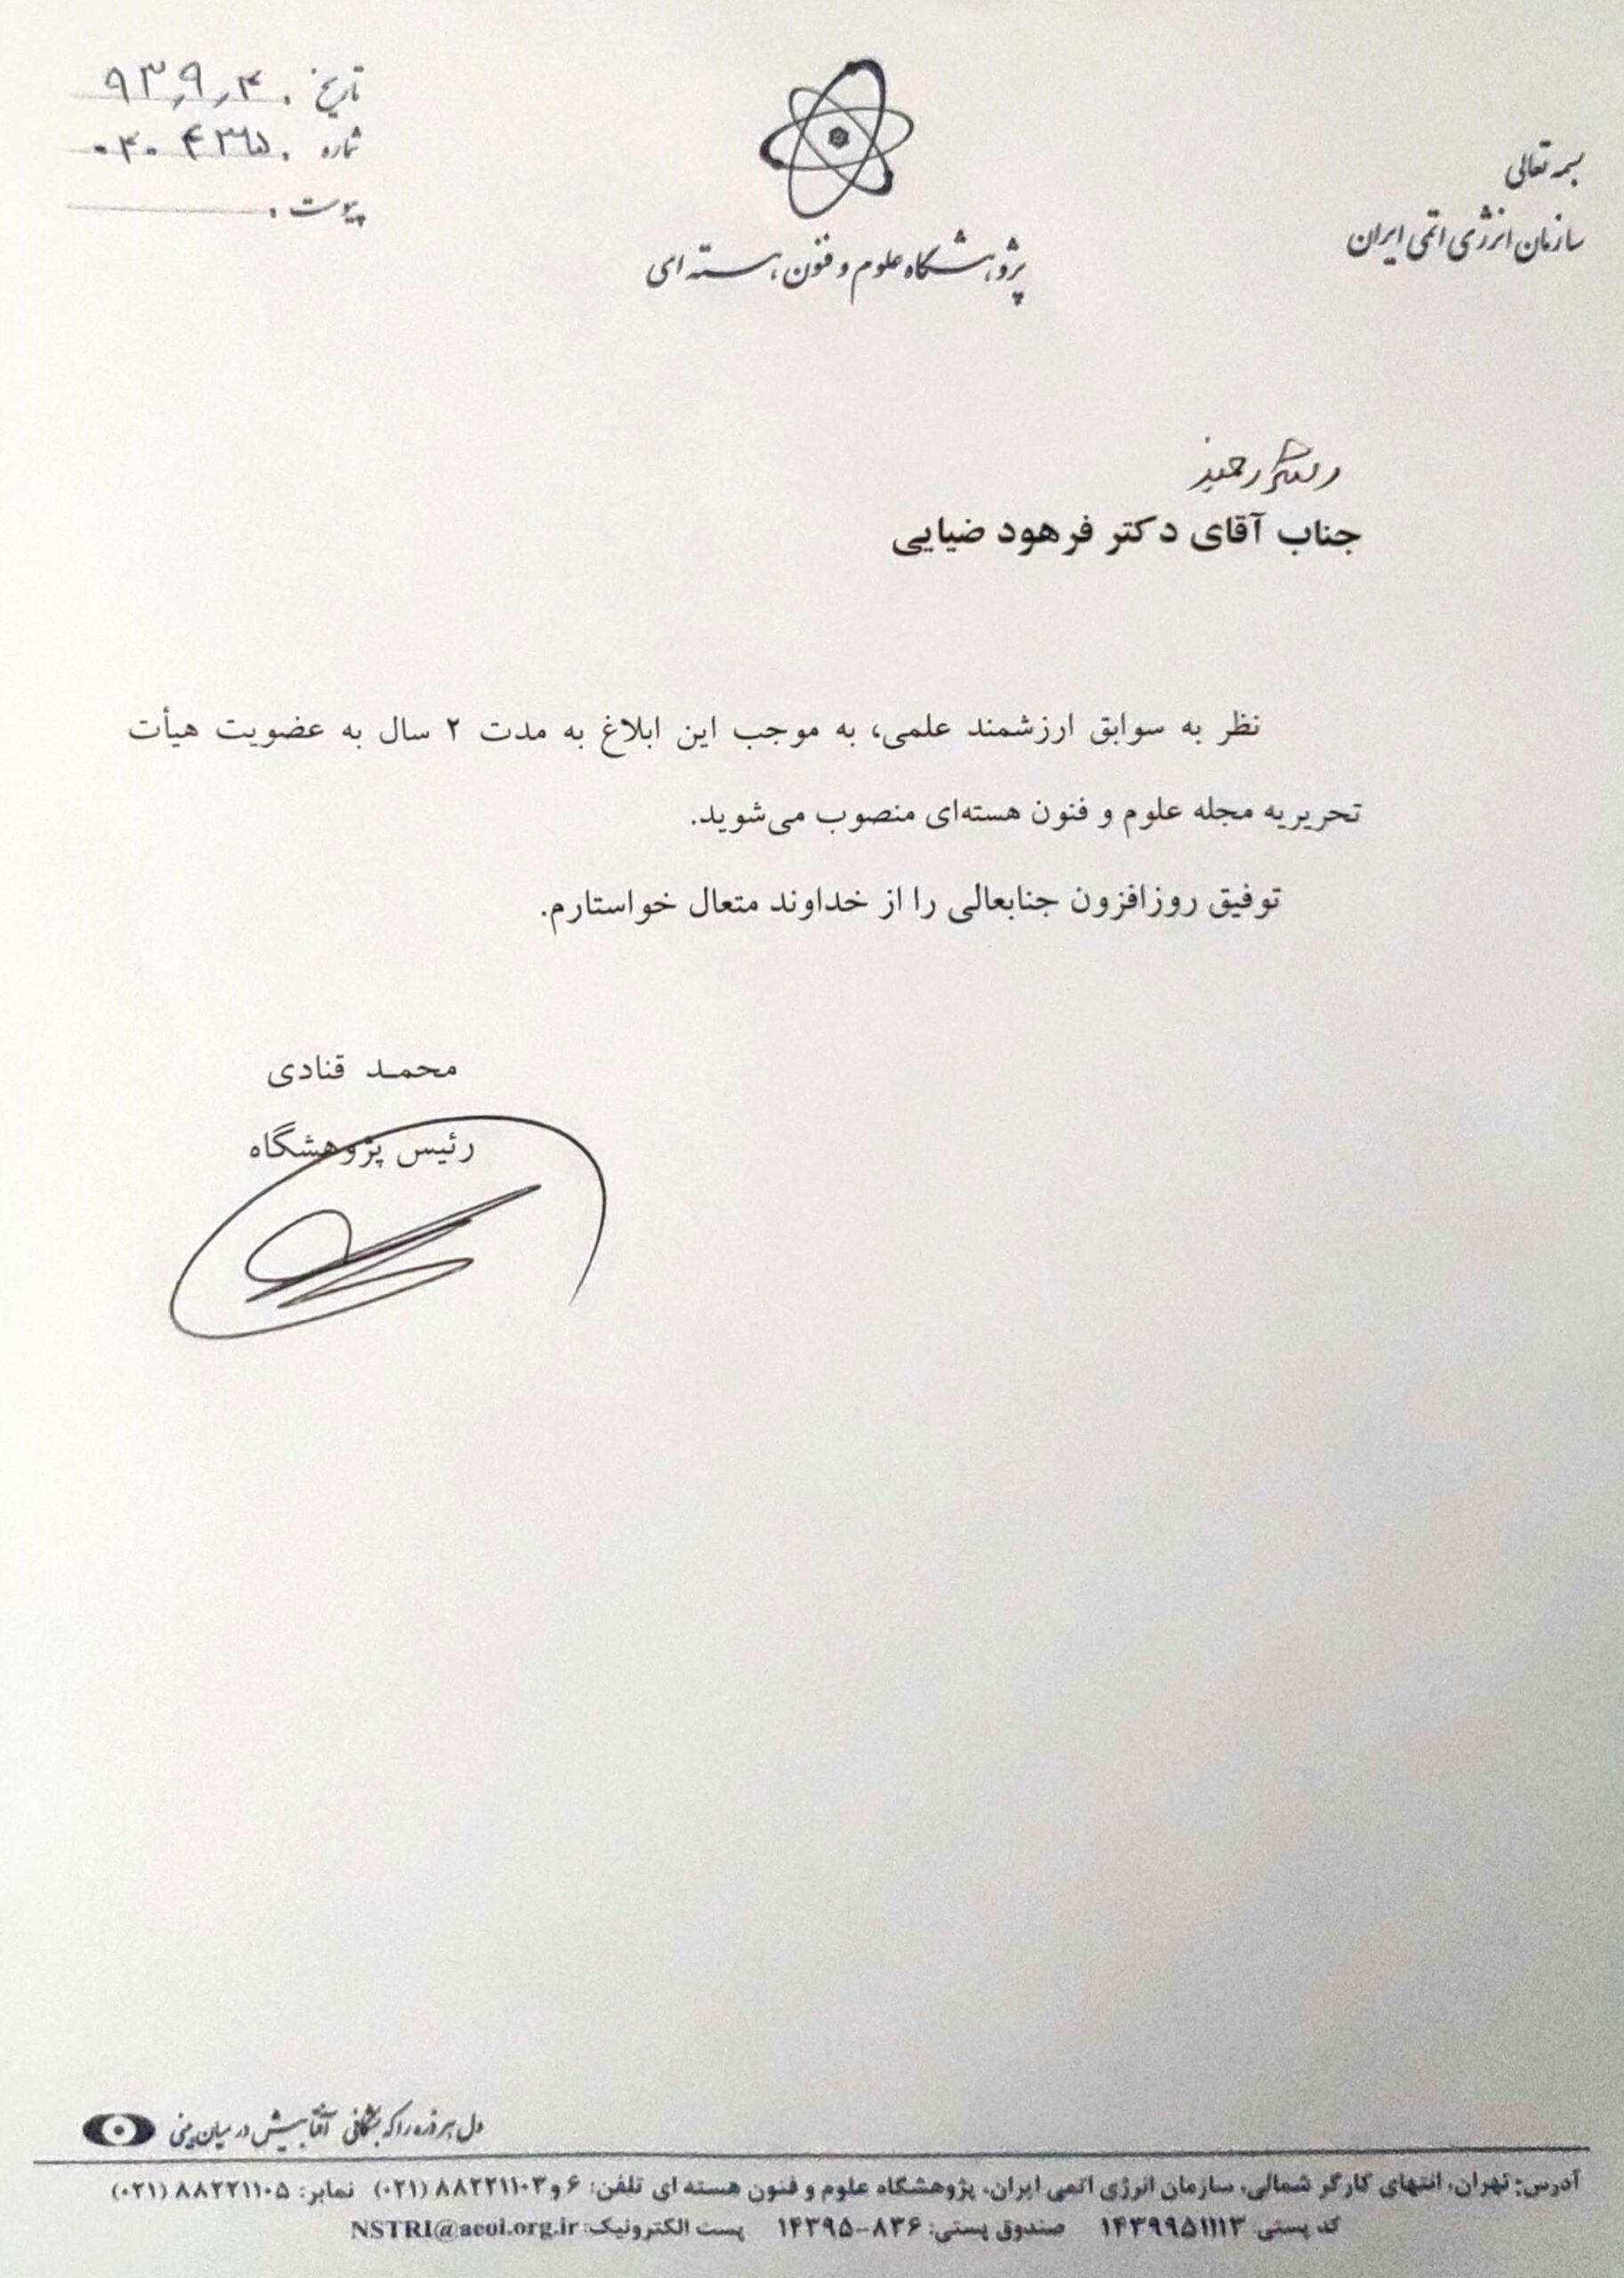 بسمه تعالی
سازمان انرژی اتمی ایران
پژوهشگاه علوم و فنون هسته ای
تاریخ ۹۳,۹,۴
شماره ۰۴۰۴۳۶۵
پیوست
جناب آقای دکتر فرهود ضیایی
نظر به سوابق ارزشمند علمی، به موجب این ابلاغ به مدت ۲ سال به عضویت هیأت
تحریریه مجله علوم و فنون هسته‌ای منصوب می‌شوید.
توفیق روزافزون جنابعالی را از خداوند متعال خواستارم.
محمد قنادی
رئیس پژوهشگاه
دل هر ذره را که بشکافی آفتابیش در میان بینی
آدرس: تهران، انتهای کارگر شمالی، سازمان انرژی اتمی ایران، پژوهشگاه علوم و فنون هسته ای تلفن: ۶ و ۸۸۲۲۱۱۰۳ (۰۲۱) نمابر: ۸۸۲۲۱۱۰۵ (۰۲۱)
کد پستی ۱۴۳۹۹۵۱۱۱۳ صندوق پستی: ۸۳۶-۱۴۳۹۵ پست الکترونیک: NSTRI@aeoi.org.ir